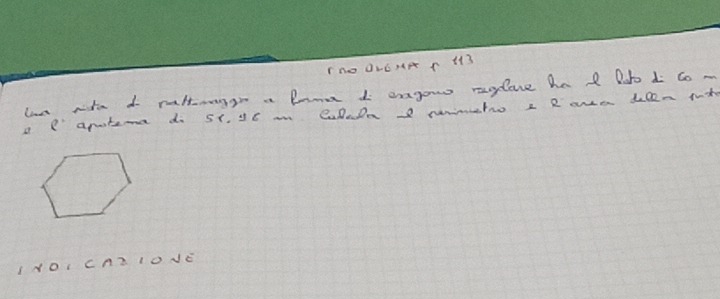 PROBLEMA p 113
Una pista di pattinaggio a forma di esagono regolare ha il lato di 60 m
e l'apotema di 51,96 m Calcola il perimetro e l'area della pista
INDICAZIONE